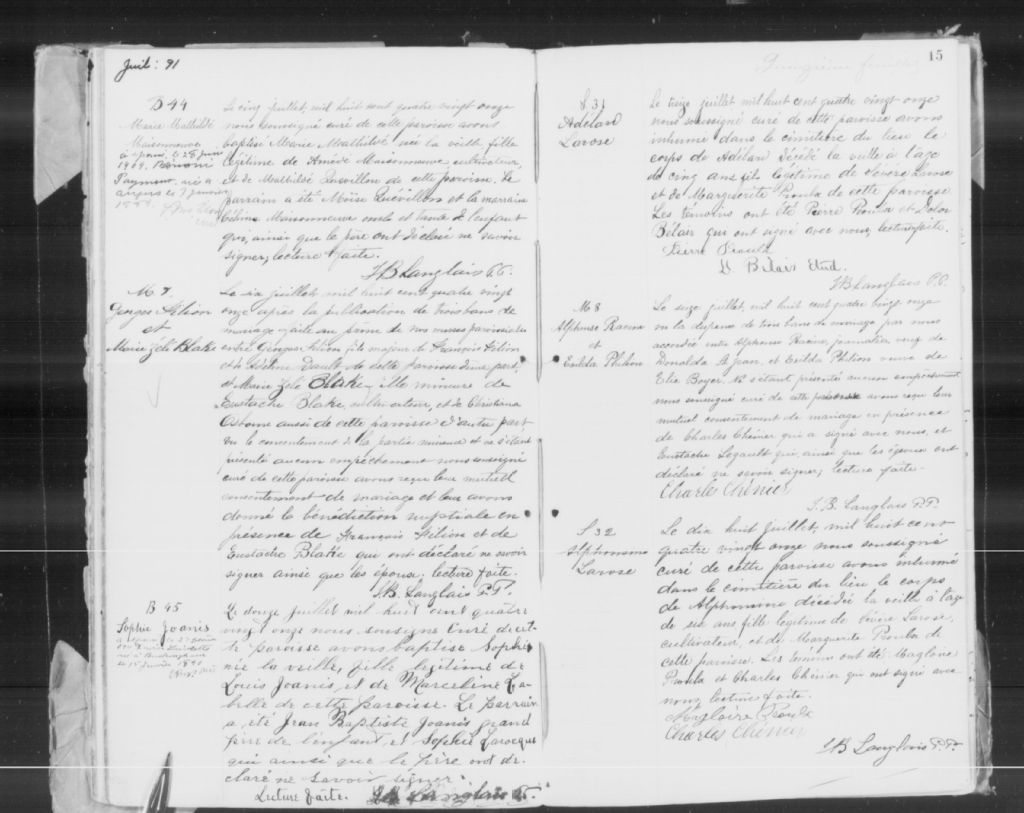 Juil: 91
B 44
Marie Mathilde
Maisonneuve
à épousé le 28 juin
1909
Payment né à
Angers le 7 janvier
Le cinq juillet, mil huit cent quatre vingt onze
nous soussigné curé de cette paroisse avons
baptisé Marie Mathilde née la veille fille
légitime de Amédé Maisonneuve cultivateur,
et de Mathilde Quévillon de cette paroisse. Le
parrain a été Moise Quévillon et la marraine
Maisonneuve oncle et tante de l'enfant
qui, ainsi que le père ont déclaré ne savoir
signer, lecture faite.
J B Langlais P.P.
M 7.
Georges Filion
et
Marie Zéli Blake
Le six juillet, mil huit cent quatre vingt
onze après la publication de trois bans de
mariage faite au prône de nos messes paroissiales
entre Georges Filion fils majeur de François Filion
et de Dault de cette paroisse d'une part,
et Marie Zéli Blake fille mineure de
Eustache Blake, cultivateur, et de Christiana
Osborn aussi de cette paroisse d'autre part
vu le consentement de la partie mineure et ne s'étant
présenté aucun empêchement nous soussigné
curé de cette paroisse avons reçu leur mutuel
consentement de mariage et leur avons
donné la bénédiction nuptiale en
présence de François Filion et de
Eustache Blake qui ont déclaré ne savoir
signer ainsi que les époux, lecture faite.
J.B. Langlais P.P.
B 45
Sophie Joanis
Le douze juillet mil huit cent quatre
vingt onze nous soussigné curé de cet-
te paroisse avons baptisé Sophie
née la veille, fille légitime de
Louis Joanis, et de Marceline La-
belle de cette paroisse. Le parrain
a été Jean Baptiste Joanis grand
père de l'enfant, et Sophie Larocque
qui ainsi que le père ont dé-
claré ne savoir signer.
Lecture faite. J B Langlais P.P.
15
Quinzième feuillet
S 31
Adélard
Larose
Le treize juillet mil huit cent quatre vingt onze
nous soussigné curé de cette paroisse avons
inhumé dans le cimetière du lieu le
corps de Adélard décédé la veille à l'âge
de cinq ans fils légitime de Sévère Larose
et de Marguerite Proulx de cette paroisse
Les témoins ont été Pierre Proulx et
Bélair qui ont signé avec nous, lecture faite.
Pierre Proulx
Bélair Etud.
J B Langlais P.P.
M 8
Alphonse Racine
et
Exilda Philion
Le seize juillet, mil huit cent quatre vingt onze
vu la dispense de trois bans de mariage par nous
accordée entre Alphonse Racine journalier veuf de
Donalda Lejean, et Exilda Philion veuve de
Elie Boyer. Ne s'étant présenté aucun empêchement
nous soussigné curé de cette paroisse avons reçu leur
mutuel consentement de mariage en présence
de Charles Chénier qui a signé avec nous, et
Eustache Legault qui, ainsi que les époux ont
déclaré ne savoir signer, lecture faite.
Charles Chénier
J. B. Langlais P.P.
S 32
Alphonsine
Larose
Le dix huit juillet, mil huit cent
quatre vingt onze nous soussigné
curé de cette paroisse avons inhumé
dans le cimetière du lieu le corps
de Alphonsine décédée la veille à l'âge
de six ans fille légitime de Sévère Larose,
cultivateur, et de Marguerite Proulx de
cette paroisse. Les témoins ont été Magloire
Proulx et Charles Chénier qui ont signé avec
nous lecture faite.
Magloire Proulx
Charles Chénier
J B Langlais P.P.